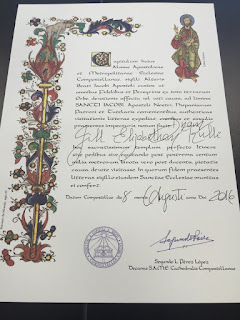 Capitulum huius
Almae Apostolicae et
Metropolitanae Ecclesiae
Compostellanae, sigilli Altaris
Beati Iacobi Apostoli custos ut
omnibus Fidelibus et Peregrinis ex toto terrarum
Orbe, devotionis affectu vel voti causa, ad limina
SANCTI IACOBI, Apostoli Nostri, Hispaniarum
Patroni et Tutelaris convenientibus, authenticas
visitationis litteras expediat, omnibus et singulis
praesentes inspecturis, notum facit:
hoc sacratissimum templum, perfecto itinere
sive pedibus sive equitando post postrema centum
milia metrorum, birota vero post ducenta, pietatis
causa, devote visitasse. In quorum fidem praesentes
litteras, sigillo eiusdem Sanctae Ecclesiae munitas
ei confero.
Datum Compostellae die 8 mensis Augusti anno Dni 2016
Segundo L. Pérez López
Decanus S.A.M.E. Cathedralis Compostellanae